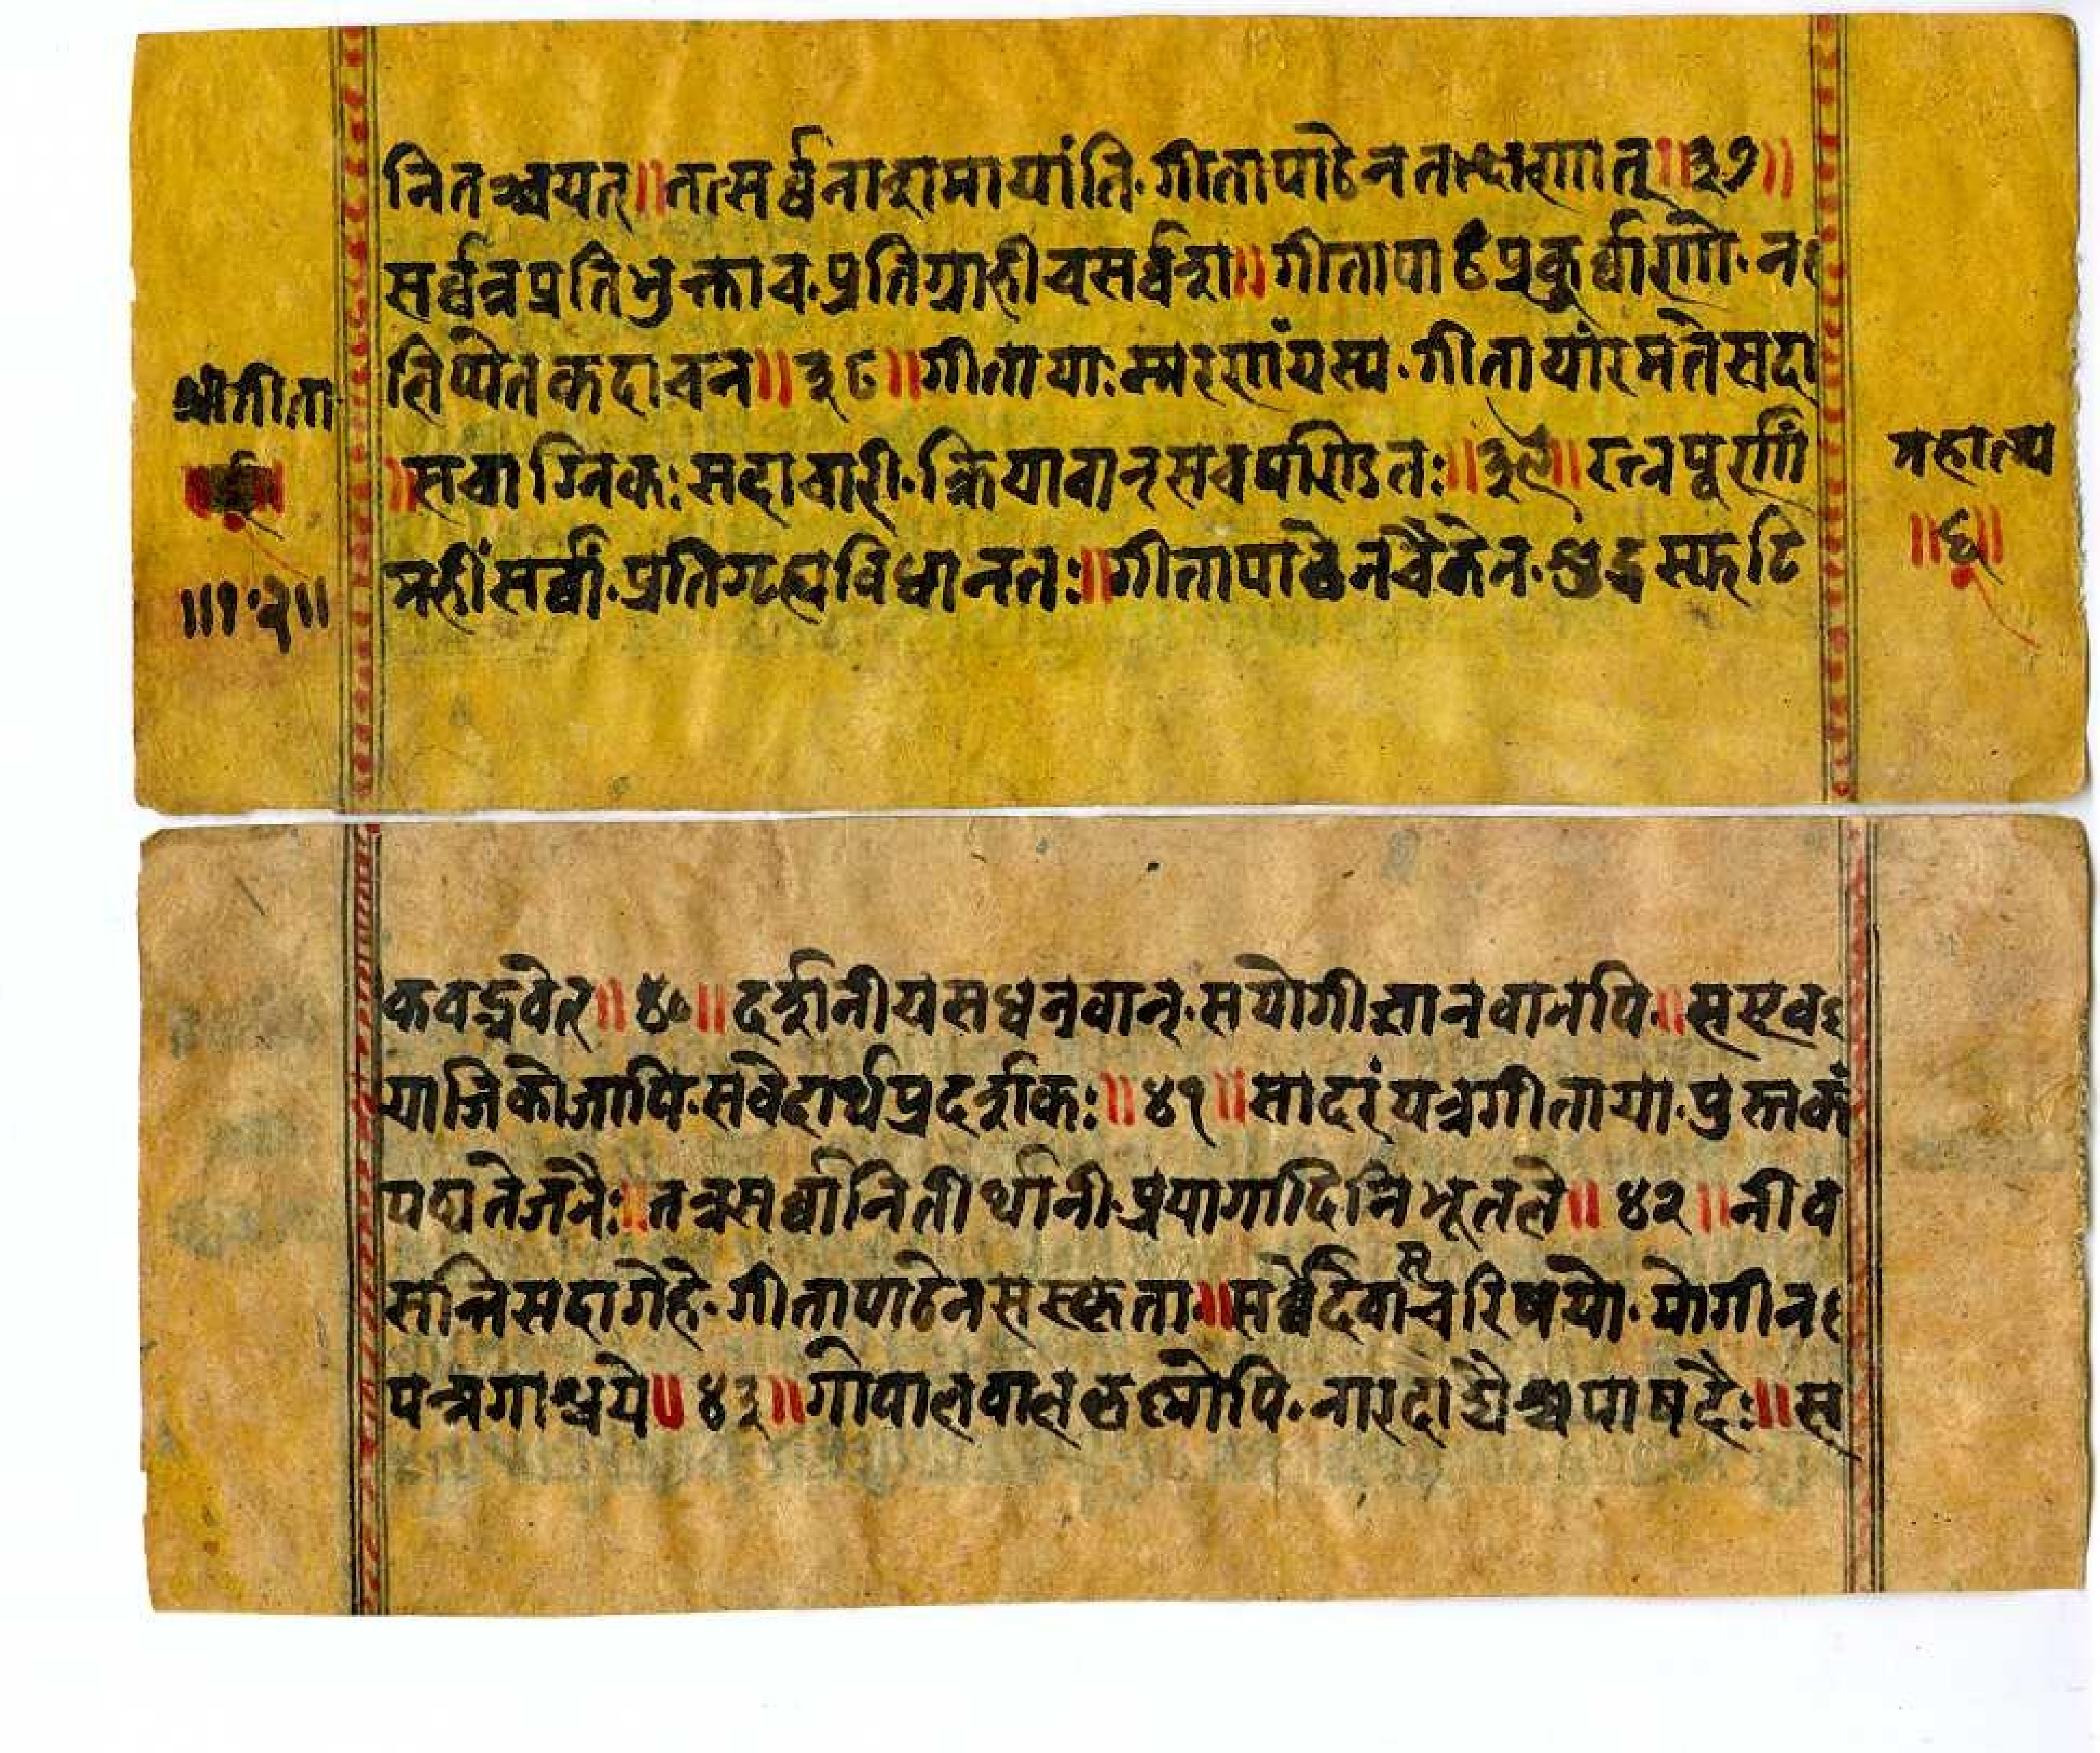 नितञ्चयत्॥तत्सर्व्वनाशमायांति·गीतापाठेनतत्क्षणात्॥३७॥
सर्व्वत्रप्रतिभुक्ताच·प्रतिग्राहीचसर्व्वशा॥गीतापाठंप्रकुर्व्वाणो·न
लिप्येतकदाचन॥३८॥गीतायाःस्मरणंयस्य·गीतायांरमतेसदा
॥सवाग्निकःसदाचारी·क्रियावान्सचपण्डितः॥३९॥रत्नपूर्णां
महींसर्वां·प्रतिगृह्यविधानतः॥गीतापाठेनचैकेन·शुद्धस्फटि
श्रीगीता
॥१३॥
महात्म्य
॥६॥
कवद्भवेत्॥४०॥दर्शनीयसधनवान्·सयोगीज्ञानवानपि॥सएव
याजिकोजापि·सवेदार्थप्रदर्शकः॥४१॥सादरंयत्रगीताया·पुस्तकं
पद्यतेजनैः॥तत्रसर्वानितीर्थानी·प्रयागादिनिभूतले॥४२॥नीव
सन्तिसदागेहे·गीतापाठेनसंस्कृता॥सर्व्वेदेवाँश्चरिषयो·योगीन
पन्नगाश्चये॥४३॥गोपालवालकृष्णोपि·नारदाद्यैश्चपाषदैः॥स